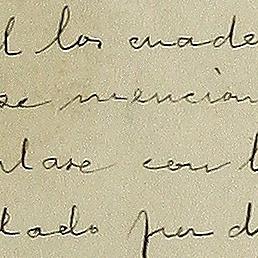 l los cuade
se mencion
ntase con l
lado por d